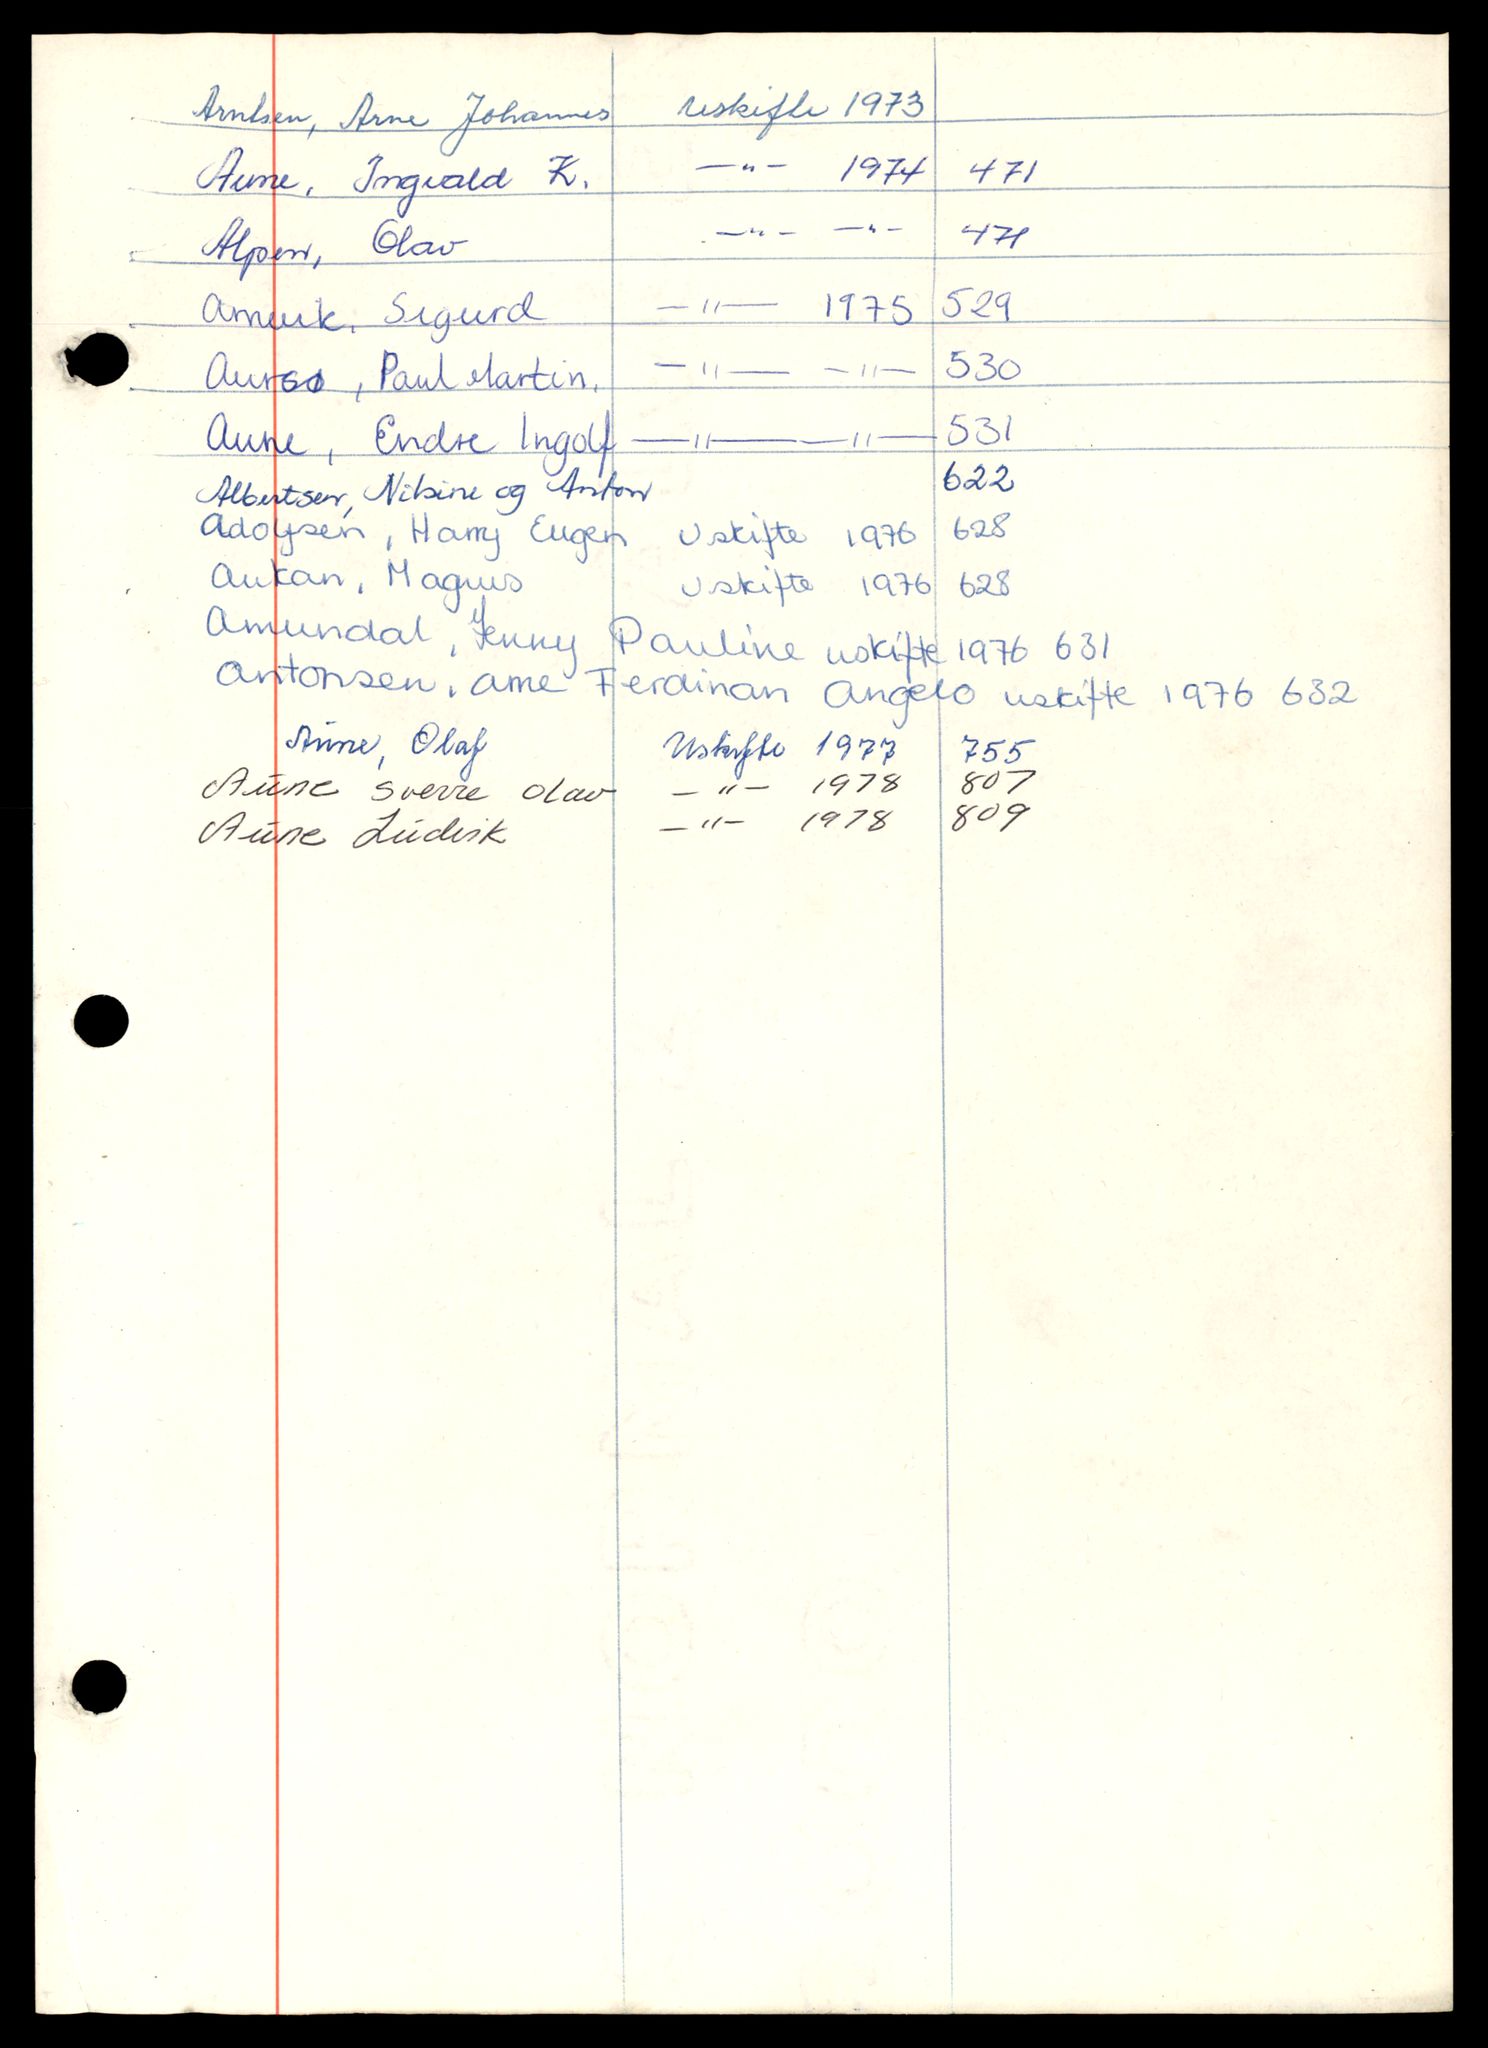 Arntsen, Arne Johannes uskifte 1973
Aune, Ingvald K. —"— 1974 471
Alpen, Olav —"— —"— 471
Sigurd —"— 1975 529
Aursø, Paul Martin. —"— —"— 530
Aune, Endre Ingolf —"— —"— 531
Albertsen, Nilsine og Anton 622
Adolfsen, Harry Eugen Uskifte 1976 628
Aukan, Magnus Uskifte 1976 628
Amundal, Jenny Pauline uskifte 1976 631
Antonsen, Arne Ferdinan Angelo uskifte 1976 632
Aune, Olaf Uskifte 1977 755
Aune Sverre Olav —"— 1978 807
Aune Ludvik —"— 1978 809